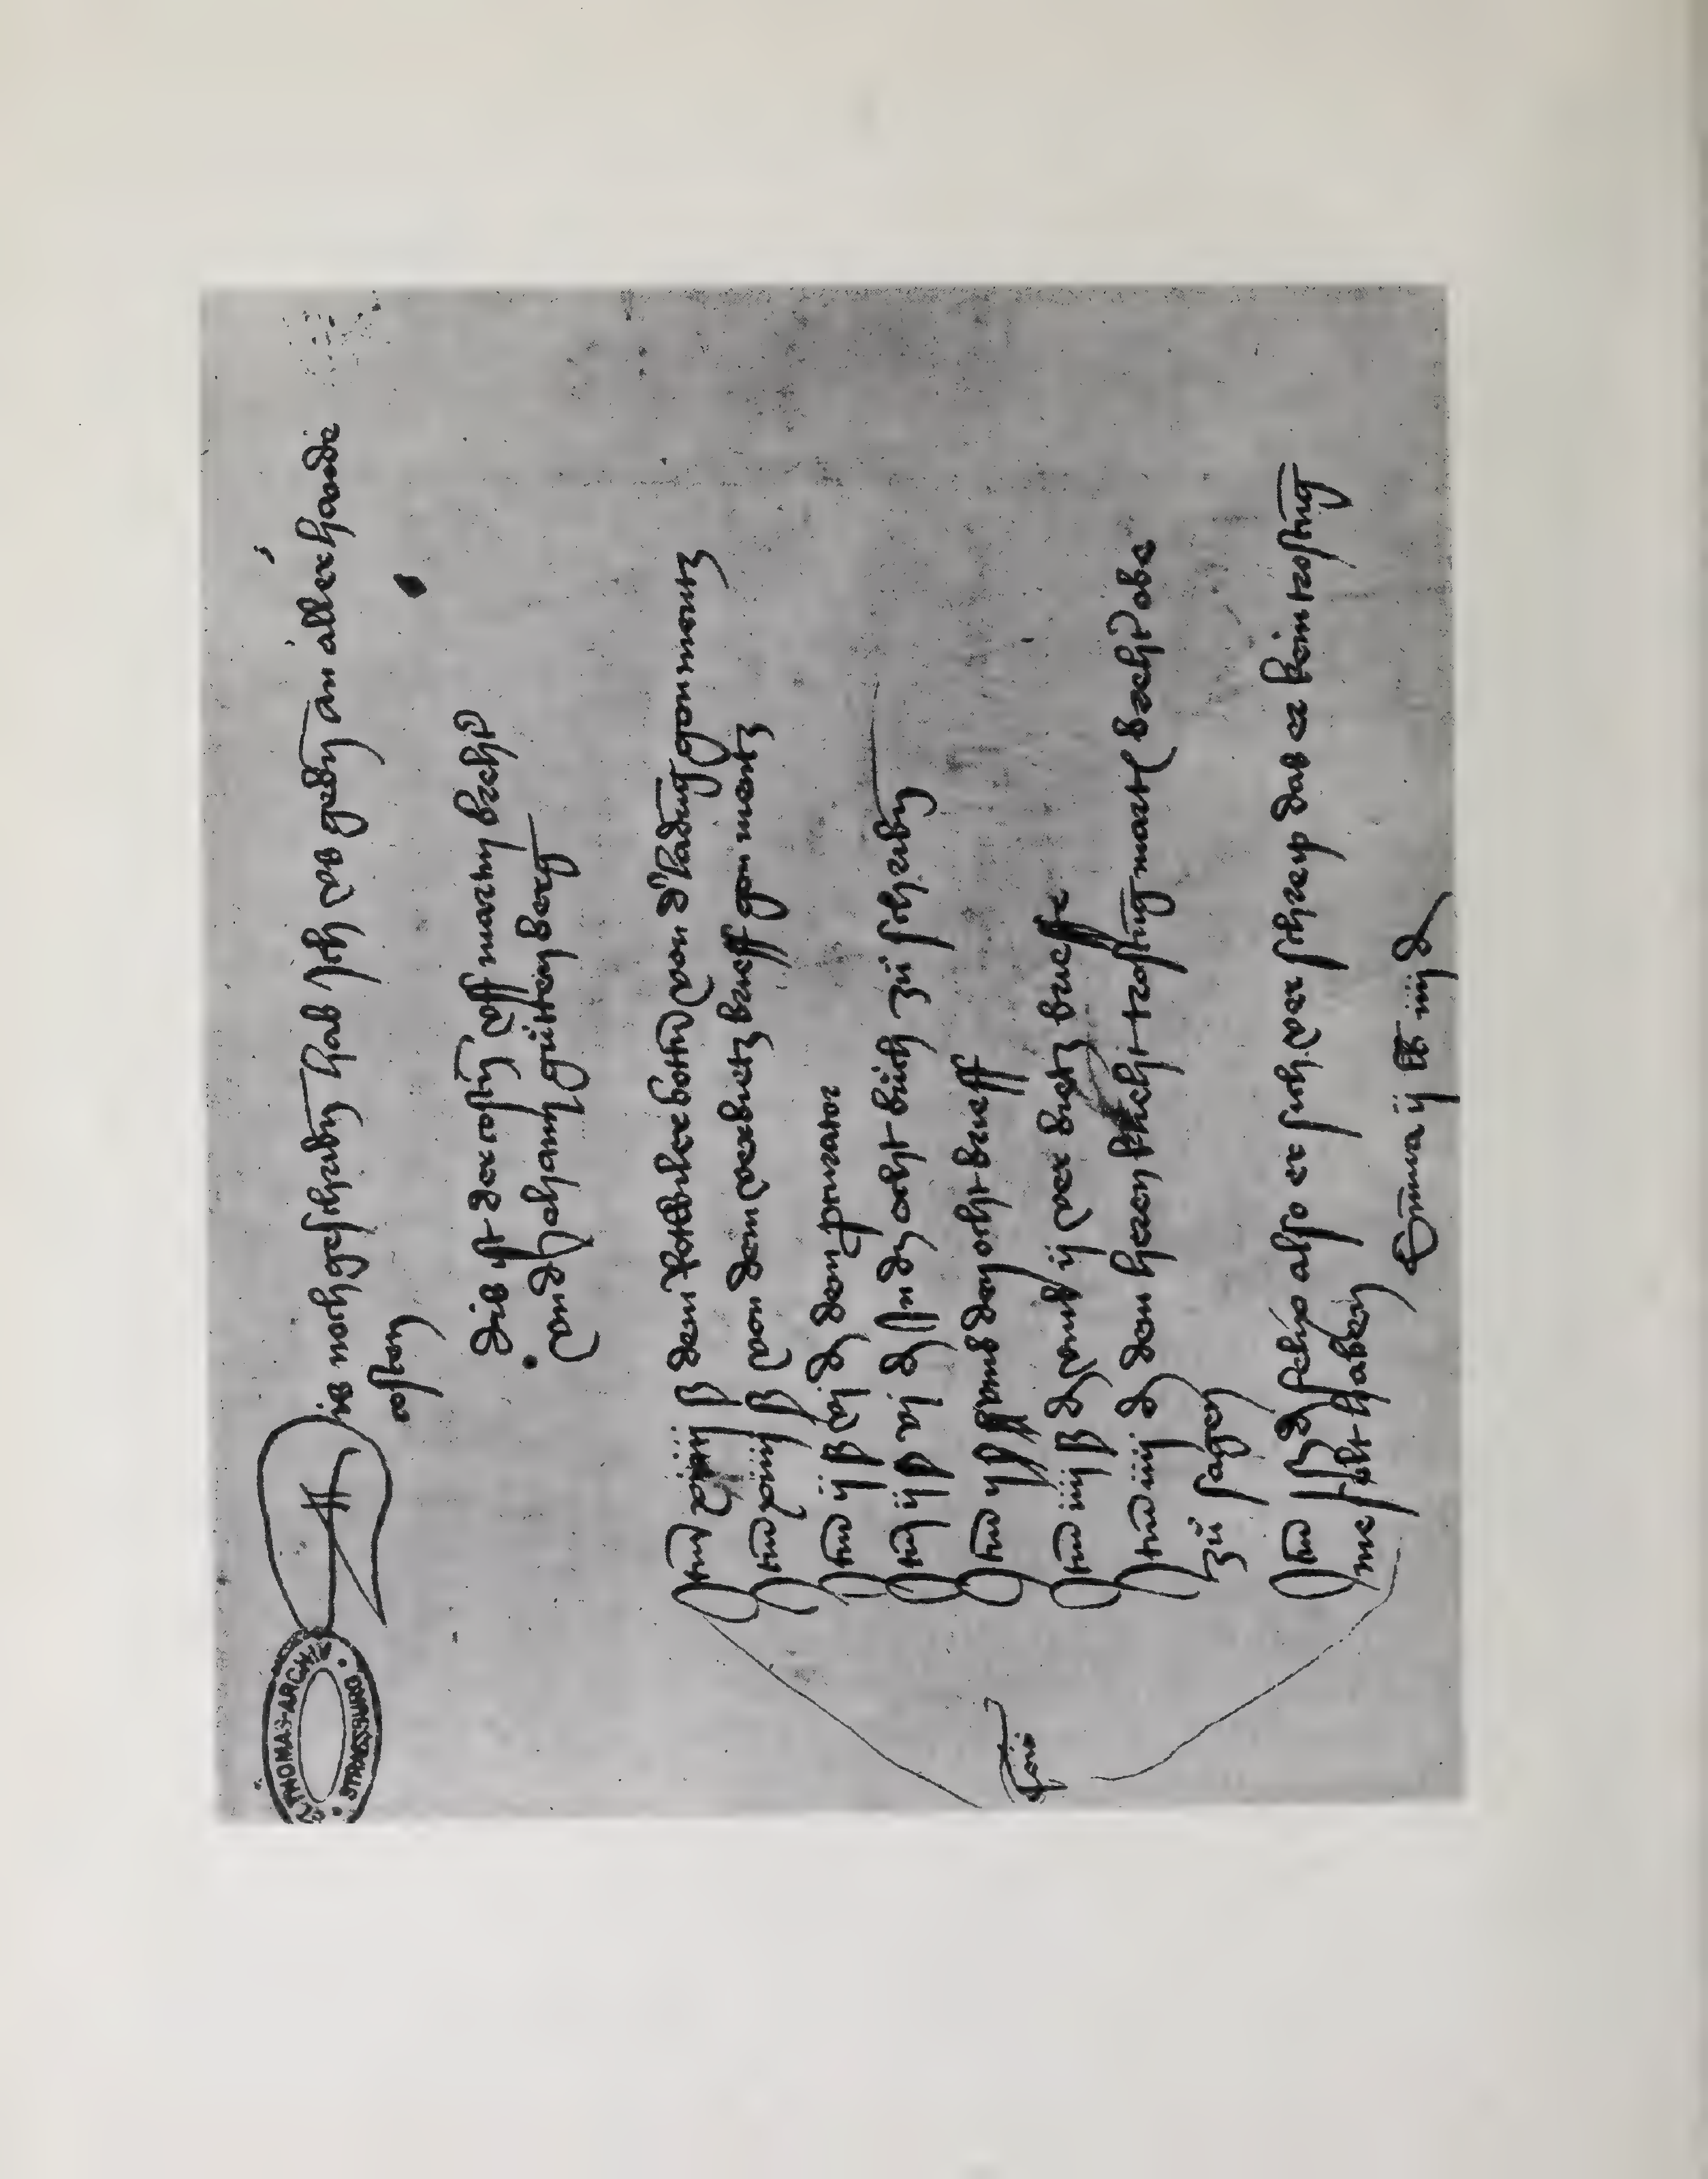 ST. THOMAS-ARCH.
STRASSBURG
Dis noch geschriben hab ich vs geben an aller hande
costen
Dis ist der costen vff martin brechter
vnd Johann guttenberg
Item dem Rottwiler botten von der ladung gon mentz
Item xiiij ß von dem verbietz brieff gon mentz
Item ij ß vj d dem procurator
Item ij ß vj d In dz ocht buch zu schriben
Item ij ß vmb den ocht brieff
Item iiij ß d vmb ij ver bietz brieffe
Item iiij d dem herren knecht trostung martin brechter abe
zu sagen
Item d also er sich ver schreip das er kein trostung
me solt haben
Summa ij lb iiij d